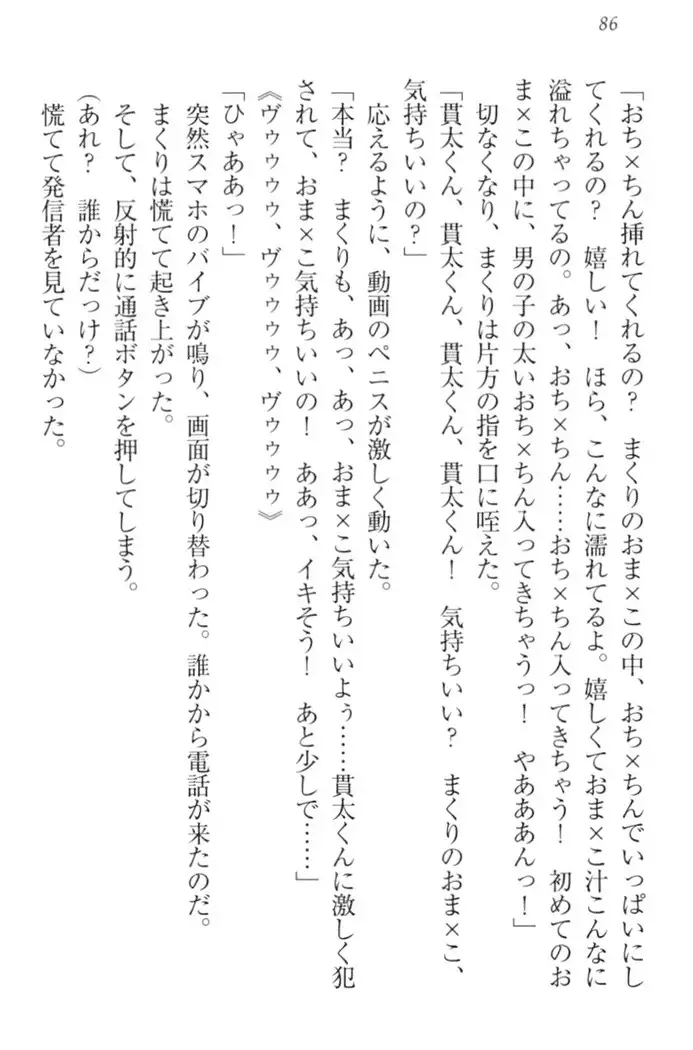 86
「おち×ちん挿れてくれるの?　まくりのおま×この中、おち×ちんでいっぱいにし
てくれるの?　嬉しい!　ほら、こんなに濡れてるよ。嬉しくておま×こ汁こんなに
溢れちゃってるの。あっ、おち×ちん……おち×ちん入ってきちゃう!　初めてのお
ま×この中に、男の子の太いおち×ちん入ってきちゃうっ!　やあああんっ!」
切なくなり、まくりは片方の指を口に咥えた。
「貫太くん、貫太くん、貫太くん!　気持ちいい?　まくりのおま×こ、
気持ちいいの?」
応えるように、動画のペニスが激しく動いた。
「本当?　まくりも、あっ、あっ、おま×こ気持ちいいよぅ……貫太くんに激しく犯
されて、おま×こ気持ちいいの!　ああっ、イキそう!　あと少しで……」
《ヴゥゥゥゥ、ヴゥゥゥゥ、ヴゥゥゥゥ》
「ひゃああっ!」
突然スマホのバイブが鳴り、画面が切り替わった。誰かから電話が来たのだ。
まくりは慌てて起き上がった。
そして、反射的に通話ボタンを押してしまう。
(あれ?　誰からだっけ?)
慌てて発信者を見ていなかった。